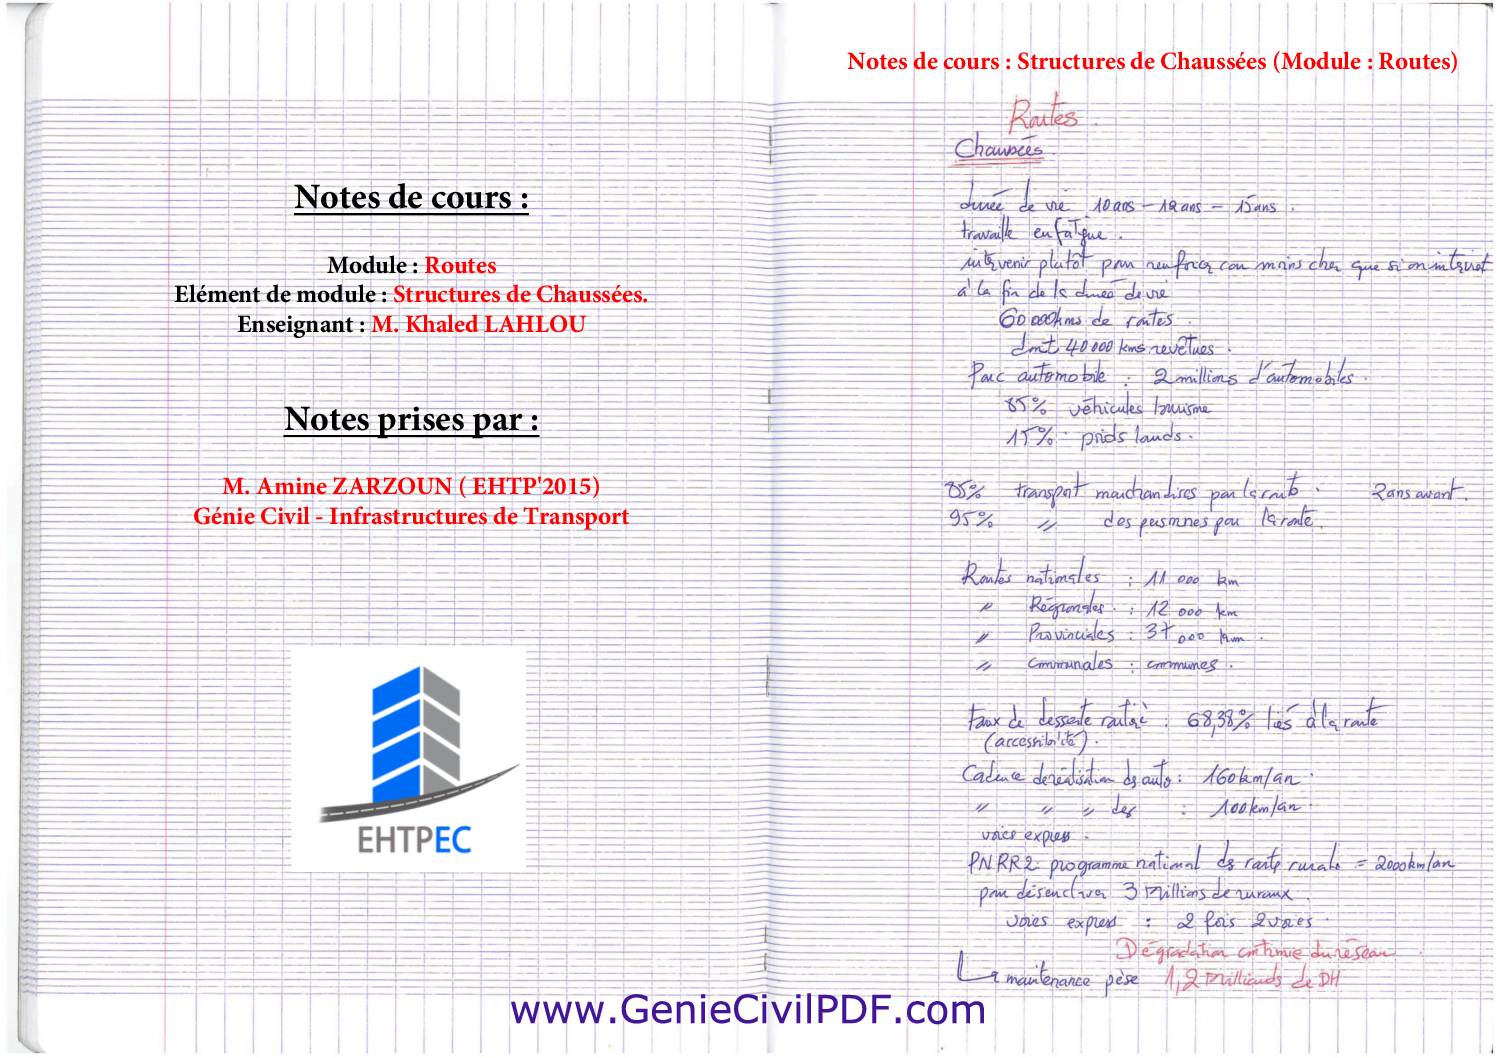 Notes de cours :
Module : Routes
Elément de module : Structures de Chaussées.
Enseignant : M. Khaled LAHLOU
Notes prises par :
M. Amine ZARZOUN ( EHTP'2015)
Génie Civil - Infrastructures de Transport
EHTPEC
Notes de cours : Structures de Chaussées (Module : Routes)
Routes.
Chaussées.
durée de vie 10 ans - 12 ans - 15 ans.
travaille en fatigue.
intervenir plutôt pour renforcer car moins cher que si on intervient
à la fin de la durée de vie
60 000 kms de routes.
dont 40 000 kms revêtues.
Parc automobile : 2 millions d'automobiles.
85% véhicules tourisme
15% poids lourds.
85% transport marchandises par la route. 2 ans avant.
95% " des personnes par la route.
Routes nationales : 11 000 km
" Régionales : 12 000 km
" Provinciales : 37 000 km.
" Communales : communes.
Taux de desserte routière : 68,38% liés à la route
(accessibilité).
Cadence de réalisation des auto : 160 km/an.
" " " des : 100 km/an.
voies express.
PNRR2 : programme national des route rurale = 2000 km/an
pour désenclaver 3 millions de ruraux.
voies express : 2 fois 2 voies.
Dégradation continue du réseau
La maintenance pèse 1,2 milliards de DH
www.GenieCivilPDF.com